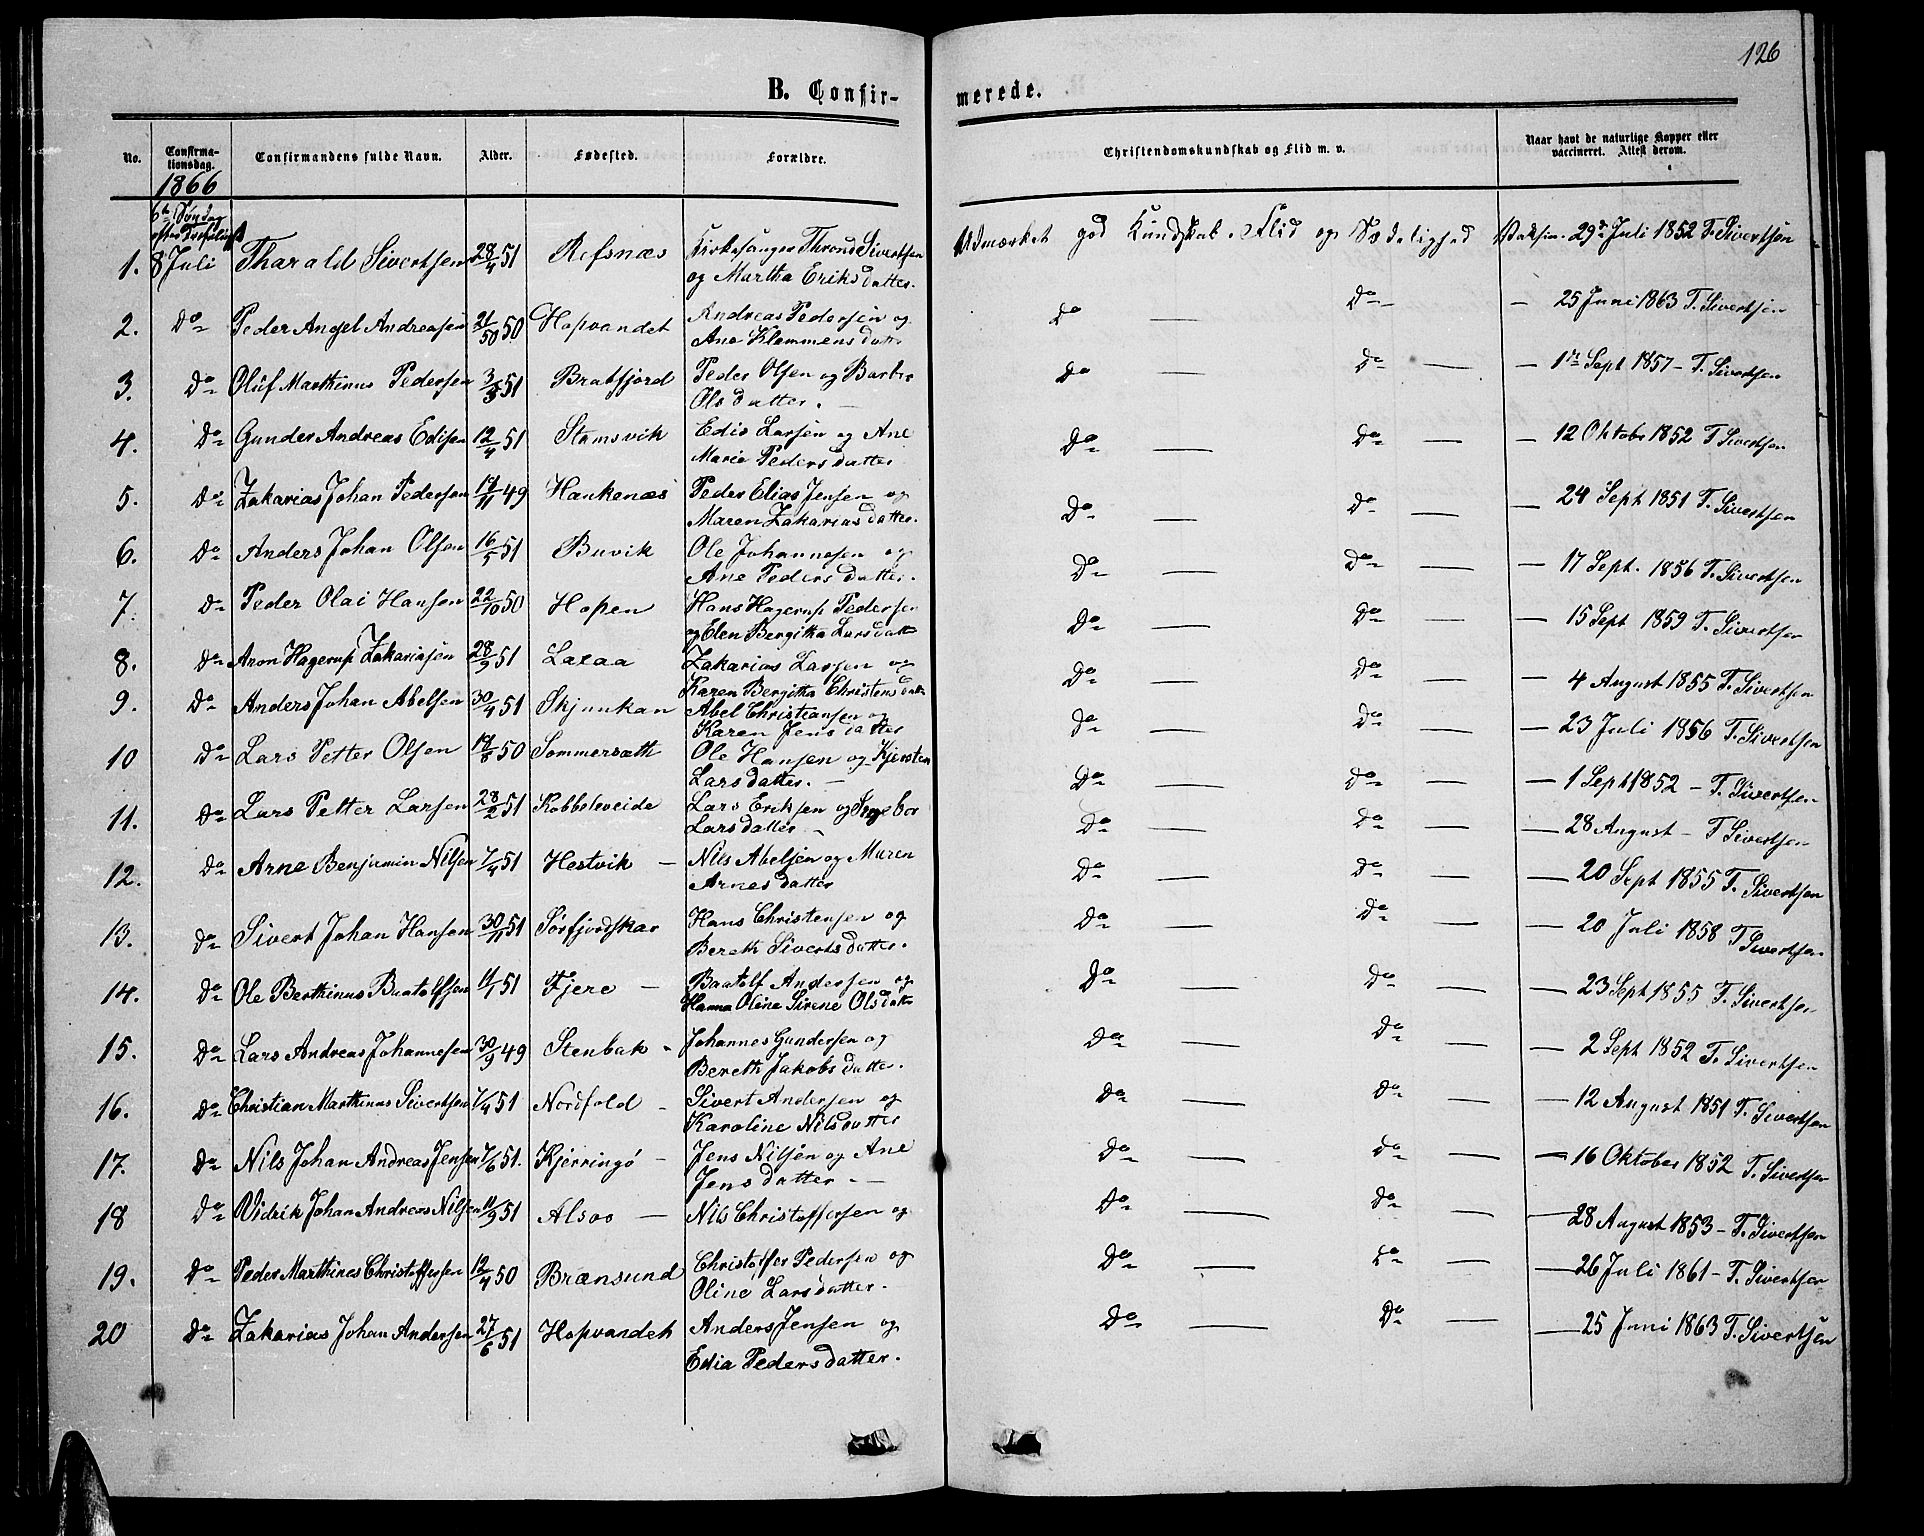 126
B. Confirmerede.
No. Confirmationsdag. Confirmandens fulde Navn. Alder. Fødested. Forældre. Christendomskundskab og Flid m. v. Naar havt de naturlige Kopper eller vaccineret. Attest derom.
1866
6te Søndag
efter Trefoldigh
1. 8 Juli Tharald Sivertsen 28/4 51 Refsnæs Kirkesanger Thrond Sivertsen Udmærket god Kundskab. Flid og Sædelighed Vaksin. 29de Juli 1852 T. Sivertsen
og Martha Eriksdatter.
2. Do Peder Angel Andreasen 50 Hopvandet Andreas Pedersen og Do — Do — 25 Juni 1863 T. Sivertsen
Ane Klemmensdatter
3. Do Oluf Marthinus Pedersen 51 Bratfjord Peder Olsen og Do — Do — — 1ste Sept 1857 – T. Sivertsen
Olsdatter. —
4. Do Gunder Andreas Edisen 12/4 51 Stamsvik Edis Larsen og Ane Do — Do — — 12 Oktober 1852 T Sivertsen
Marie Pedersdatter
5. Do Zakarias Johan Pedersen 49 Haukenæs Peder Elias Jensen og Do — Do — — 24 Sept 1851 T. Sivertsen
Maren Zakariasdatter.
6. Do Anders Johan Olsen 16/5 51 Buvik Ole Johannesen og Do — Do — — 17 Sept. 1856 T. Sivertsen
Ane Pedersdatter.
7. Do Peder Olai Hansen 22/10 50 Hopen Hans Hagerup Pedersen Do — Do — — 15 Sept 1859 T. Sivertsen
og Elen Bergitha Larsdatter
8. Do Aron Hagerup Zakariasen 28/9 51 Laxaa Zakarias Larsen og Do — Do — — 4 August 1855 T. Sivertsen
Karen Bergitha Christensdatter
9. Do Anders Johan Abelsen 30/4 51 Skjunkan Abel Christiansen og Do — Do — — 23 Juli 1856 T. Sivertsen
Karen Jensdatter
10 Do Lars Petter Olsen 50 Sommersæth Ole Hansen og Kjersten Do — Do — — 1 Sept 1852 – T. Sivertsen
Larsdatter. —
11. Do Lars Petter Larsen 28/2 51 Kobbeleveide Lars Eriksen og Ingebor Do — Do — — 28 August – T Sivertsen
Larsdatter —
12. Do Arne Benjamin Nilsen 7/4 51 Hestvik — Nils Abelsen og Maren Do — Do — — 20 Sept 1855 T. Sivertsen
Arnesdatter
13. Do Sivert Johan Hansen 30/11 51 Sørfjordskar Hans Christensen og Do — Do — — 20 Juli 1858 T Sivertsen
Bereth Sivertsdatter.
14. Do Ole Berthinus Baatolfsen 51 Fjere — Baatolf Andersen og Do — Do — — 23 Sept 1855 T. Sivertsen
Hanna Oline Sirene Olsdatter
15. Do Lars Andreas Johannesen 30/9 49 Stenbak - Johannes Gundersen og Do — Do — — 2 Sept 1852 T. Sivertsen
Bereth Jakobsdatter.
16. Do Christian Marthinus Sivertsen 7/4 51 Nordfold - Sivert Andersen og Do — Do — — 12 August 1851 T. Sivertsen
Karoline Nilsdatter
17. Do Nils Johan Andreas Jensen 7/6 51. Kjerringø - Jens Nilsen og Ane Do — Do — — 16 Oktober 1852 T. Sivertsen
Jensdatter. —
18 Do Didrik Johan Andreas Nilsen 11/9 51 Alsos — Nils Christoffersen og Do — Do — — 28 August 1853 – T. Sivertsen
19. Do Peder Marthines Christoffersen 12/4 50 Brænsund Christoffer Pedersen og Do — Do — — 26 Juli 1861 – T. Sivertsen
Oline Larsdatter.
20 Do Zakarias Johan Andersen 27/6 51 Hopvandet Anders Jensen og Do — Do — — 25 Juni 1863 T. Sivertsen
Edia Pedersdatter.